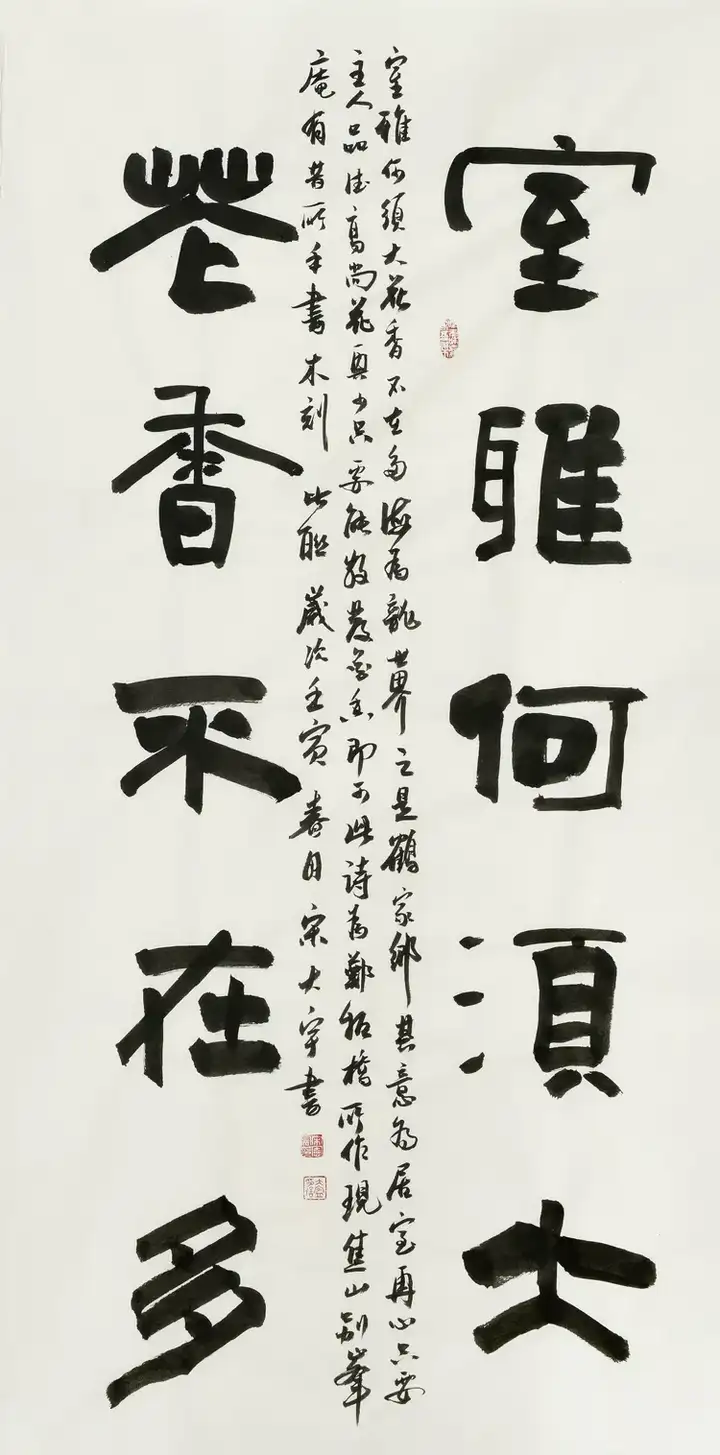 室雅何湏大
室雅何須大花香不在多海為龍世界云是鶴家鄉其意為居室再小只要
主人品德高尚花少只要能散發香即可此詩為鄭板橋所作現焦山別峯
庵有昔所手書木刻 此聯 歲次壬寅 春月 宋大宇書
花香不在多